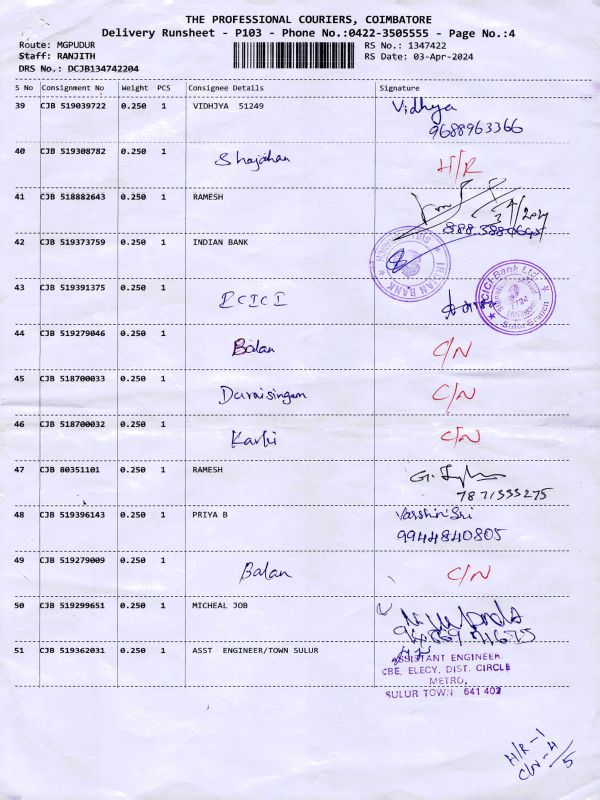 THE PROFESSIONAL COURIERS, COIMBATORE
Delivery Runsheet - P103 - Phone No.:0422-3505555 - Page No.:4
Route: MGPUDUR RS No.: 1347422
Staff: RANJITH RS Date: 03-Apr-2024
DRS No.: DCJB134742204
S No Consignment No Weight PCS Consignee Details Signature
39 CJB 519039722 0.250 1 VIDHJYA 51249 Vidhya
9688963366
40 CJB 519308782 0.250 1 Shajahan H/R
41 CJB 518882643 0.250 1 RAMESH
42 CJB 519373759 0.250 1 INDIAN BANK INDIAN BANK
43 CJB 519391375 0.250 1 ICICI ICICI Bank Ltd. Sulur Branch
44 CJB 519279046 0.250 1 Balan C/N
45 CJB 518700033 0.250 1 Duraisingam C/N
46 CJB 518700032 0.250 1 C/N
47 CJB 80351101 0.250 1 RAMESH
48 CJB 519396143 0.250 1 PRIYA B Varshini Sri
9944840805
49 CJB 519279009 0.250 1 Balan C/N
50 CJB 519299651 0.250 1 MICHEAL JOB
51 CJB 519362031 0.250 1 ASST ENGINEER/TOWN SULUR ASSISTANT ENGINEER
CBE. ELECY. DIST. CIRCLE
METRO,
SULUR TOWN 641 402
H/R - 1
C/N - 4/5